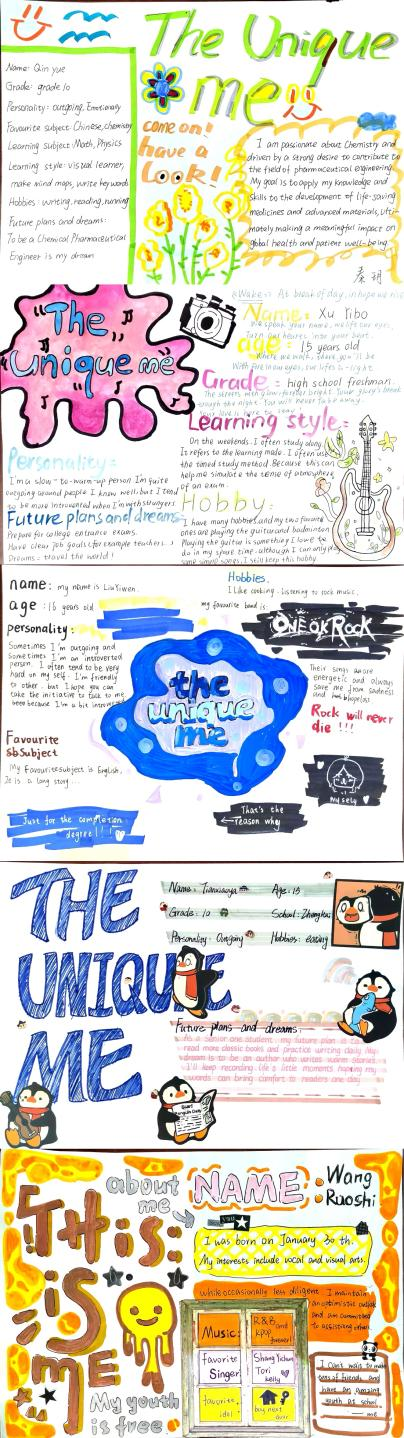 The Unique
me
Name: Qin yue
Grade: grade 10
Personality: outgoing, Emotionaly
Favourite subject Chinese, chemistry
Learning Subject: Math, Physics
Learning style: visual learner,
make mind maps, write key words
Hobbies: writing, reading, running
Future plans and dreams:
To be a Chemical Pharmaceutical
Engineer is my dream
come on!
have a
Look!
I am passionate about Chemistry and
driven by a strong desire to contribute to
the field of pharmaceutical engineering.
My goal is to apply my knowledge and
skills to the development of life-saving
medicines and advanced materials, ulti-
mately making a meaningful impact on
global health and patient well-being.
秦玥
The
Unique me
Wake: At break of day, in hope we rise
Name: Xu Yibo
We speak your name, we lift our eyes,
Tune our hearts into your beat.
age: 15 years old
Where we walk, there you'll be
With fire in our eyes, our lifes a-light
Grade: high school freshman.
Learning style:
On the weekends, I often study along.
It refers to the learning made. I often use
the timed study method. Because this can
help me simulate the tense of atmosphere
of an exam.
Personality:
I'm a slow-to-warm-up person. I'm quite
outgoing around people I know well, but I tend
to be more introverted when I'm with
Future plans and dreams:
Prepare for college entrance exams.
Have clear job goals, for example teachers.
Dreams: travel the world!
Hobby:
I have many hobbies, and my two favorite
ones are playing the guitar and badminton
Playing the guitar is something I love to
do in my spare time. although I can only play
some simple songs, I still keep this hobby.
name: my name is LiuYiwen.
age: 16 years old.
personality:
Sometimes I'm outgoing and
Sometimes I'm an introverted
person. I often tend to be very
hard on my self. I'm friendly
to other. but I hope you can
take the initiative to talk to me
because I'm a bit introverted
Favourite
sbSubject
My Favourite subject is English,
It is a long story...
Just for the completion
degree!!!
the
unique
me
Hobbies.
I Like cooking. Listening to rock music.
my favourite band is:
ONE OK ROCK
Their songs aware
energetic and always
save me from sadness
and hopeless
Rock will never
die !!!
my self
That's the
reason why
THE
UNIQUE
ME
Name: Tianxiaoya
Age: 15
Grade: 10
School: Zhongkai
Personality: Outgoing
Hobbies: eating
Future plans and dreams:
As a senior one student, my future plan is to
read more classic books and practice writing daily. My
dream is to be an author who writes warm stories.
I'll keep recording life's little moments hoping my
words can bring comfort to readers one day.
This:
is
me
about
me
NAME: Wang
Ruoshi
I was born on January 30 th.
My interests include vocal and visual arts.
while occasionally less diligent, I maintain
an optimistic outlook
and am committed
to assisting others.
Music:
R&B and
kpop
forever!
favorite
Singer
Shang Yichun
Tori
kelly
favorite
idol:
boy next
door
My youth
is free
I can't wait to make
tons of friends and
have an amazing
youth at school
— me